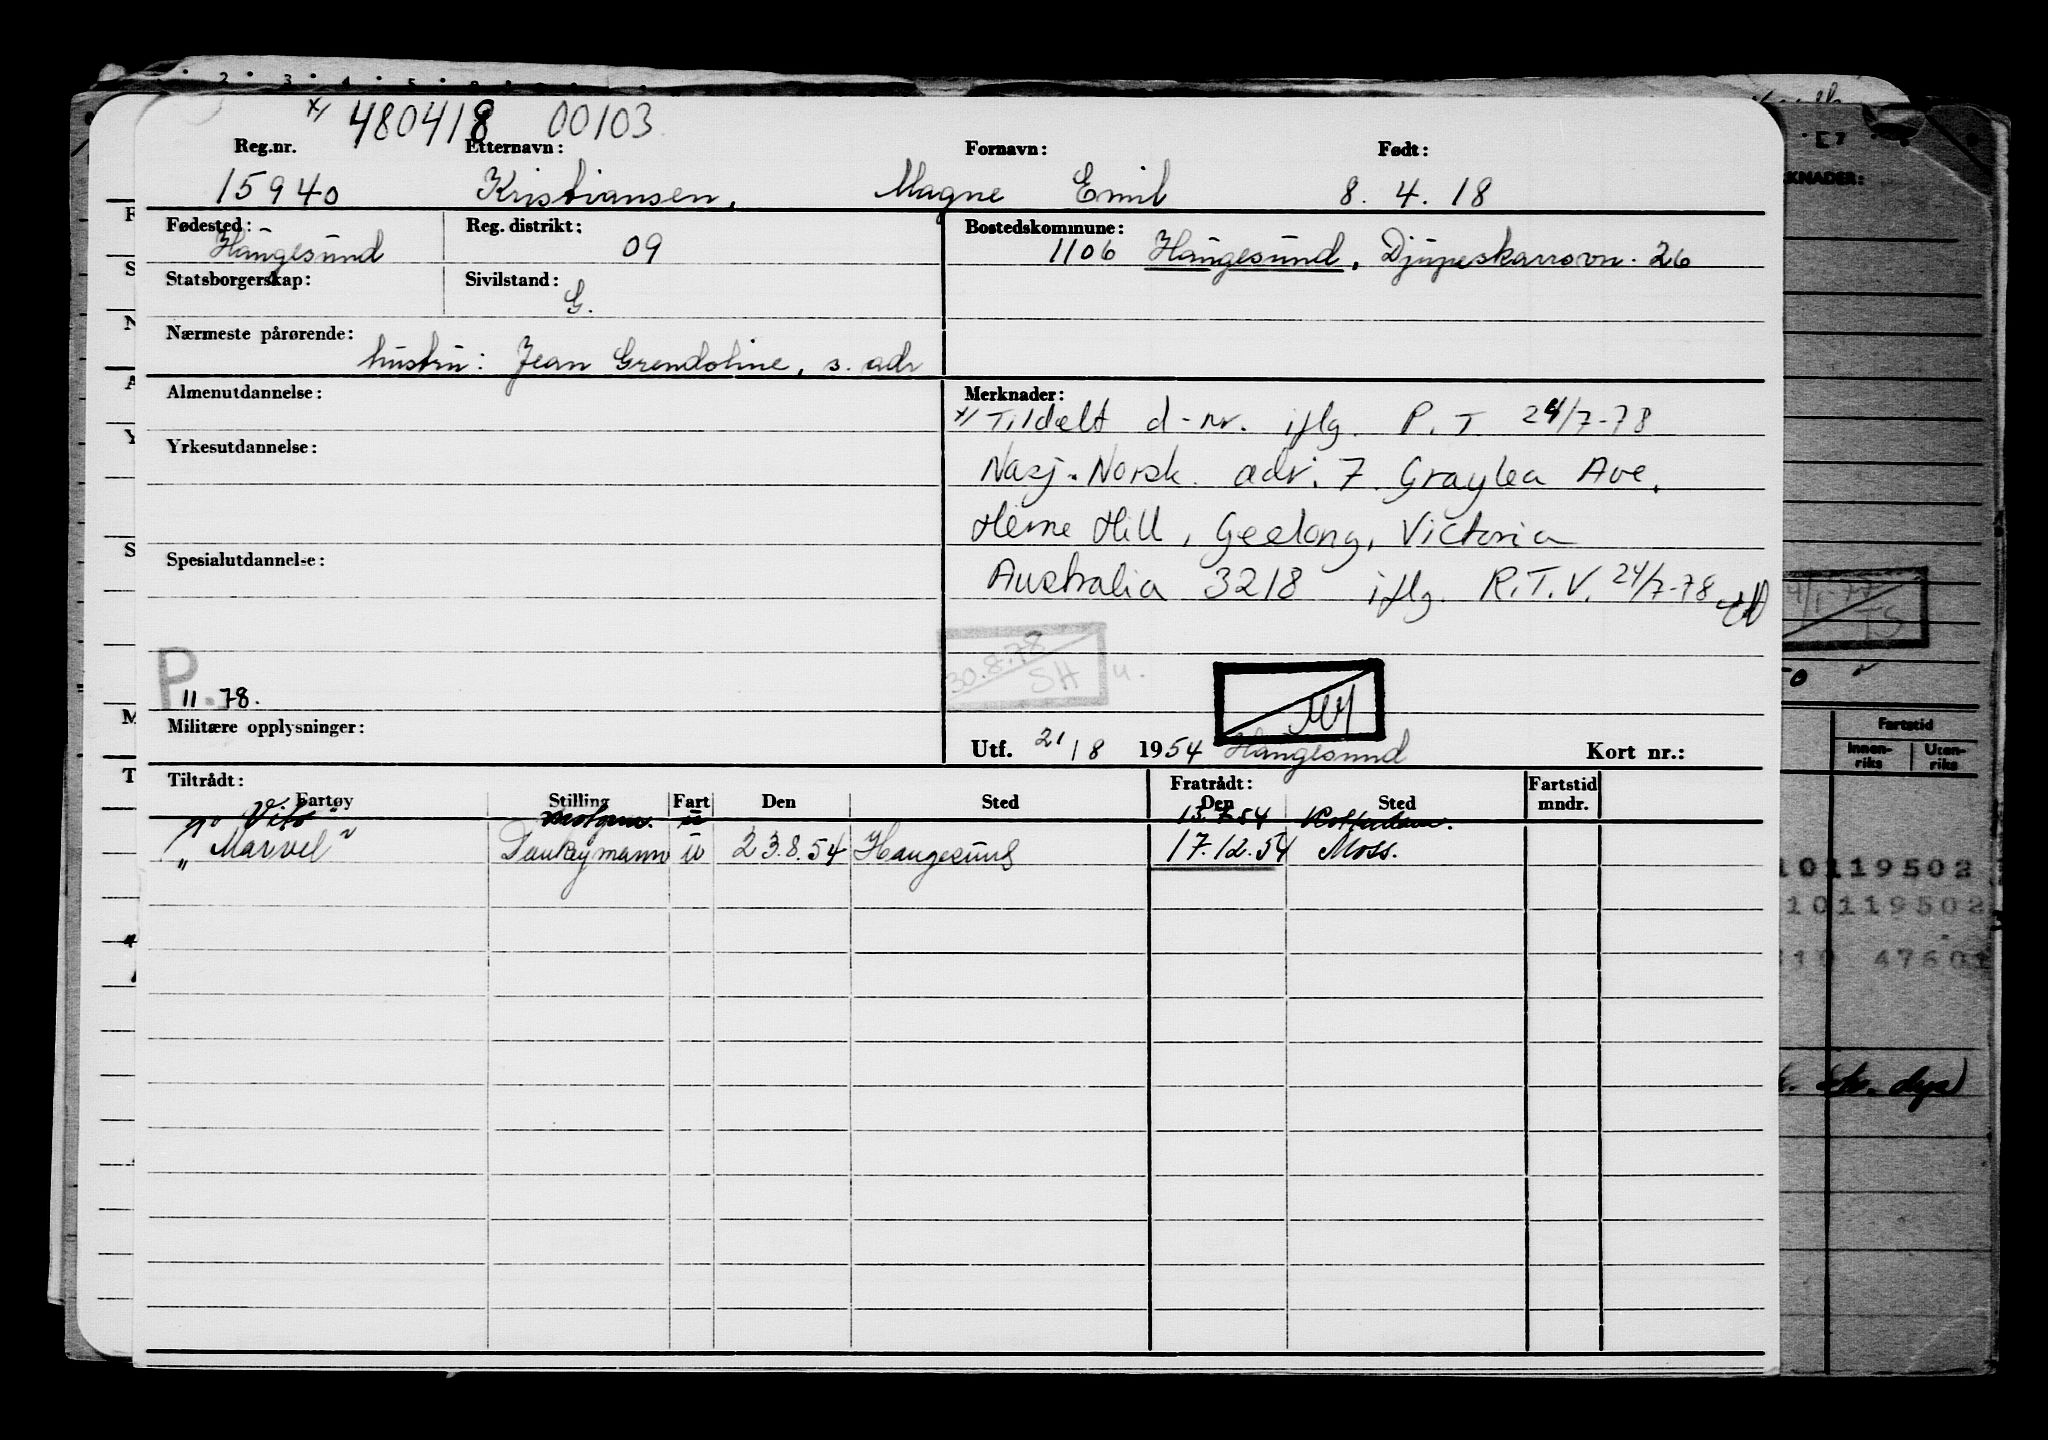 x/ 480418 00103
Reg.nr. Etternavn: Fornavn: Født:
15940 Kristiansen, Magne Emil 8. 4. 18
Fødested: Reg. distrikt: Bostedskommune:
Haugesund 09 1106 Haugesund, Djupaskarsvn. 26
Statsborgerskap: Sivilstand:
G.
Nærmeste pårørende:
hustru: Jean Grendoline, s. adr
Almenutdannelse: Merknader:
x/ Tildelt d-nr. iflg. P.T. 24/7-78
Yrkesutdannelse:
Nasj. Norsk. adr. 7. Graylea Ave.
Herne Hill, Geelong, Victoria
Spesialutdannelse:
Australia 3218 iflg. R.T.V. 24/7-78
30.8.78
SH u.
P.
11 78.
Militære opplysninger:
Utf. 21/8 1954 Haugesund Kort nr.:
Tiltrådt: Fratrådt: Fartstid
Fartøy Stilling Fart Den Sted Den Sted mndr.
"Vito" u 13.7.54
"Marvel" Dankeymann u 23.8.54 Haugesund 17.12.54 Moss.
E7
KNADER:
4/1-77
TS
Fartstid
Innenriks Utenriks
10119502
10119502
47601